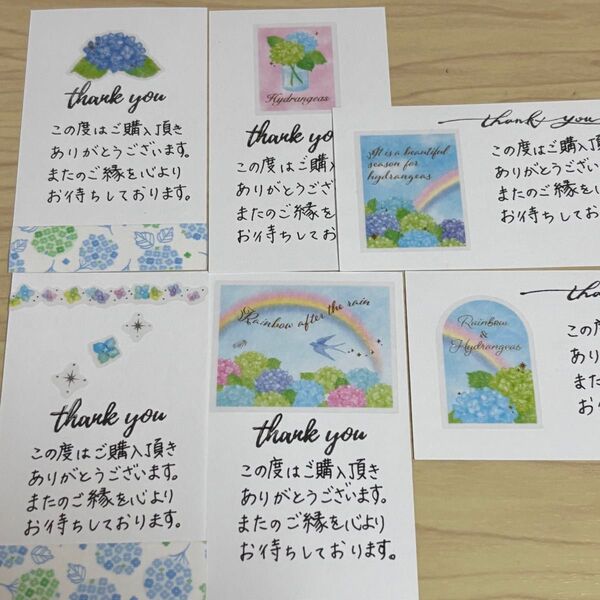 thank you
この度はご購入頂き
ありがとうございます。
またのご縁を心より
お待ちしております。
Hydrangeas
thank yo
この度はご購入頂
ありがとうございま
またのご縁を
お待ちしており
thank you
It is a beautiful
season for
hydrangeas
この度は
ありがと
またのご
お待ち
thank you
この度はご購入頂き
ありがとうございます。
またのご縁を心より
お待ちしております。
Rainbow after the rain
thank you
この度はご購入頂き
ありがとうございます。
またのご縁を心より
お待ちしております。
Rainbow
&
Hydrangeas
この
あり
また
お待